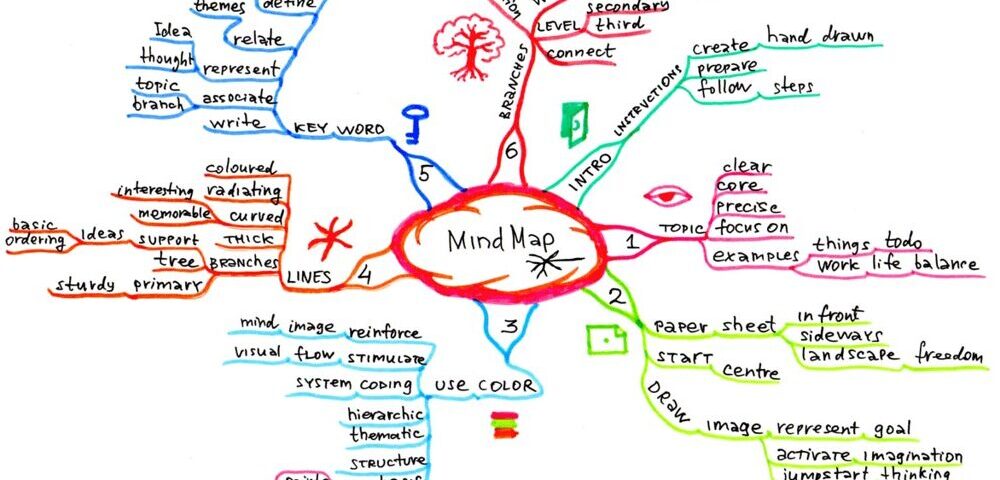 Mind Map
INTRO
INSTRUCTIONS
create hand drawn
prepare
follow steps
1
TOPIC
clear
core
precise
focus on
examples
things todo
work life balance
2
paper sheet
in front
sidewars
landscape freedom
START
centre
DRAW
image represent goal
activate imagination
jumpstart thinking
3
USE COLOR
mind image reinforce
visual flow STIMULATE
SYSTEM CODING
hierarchic
thematic
STRUCTURE
4
LINES
coloured
interesting radiating
memorable curved
THICK
basic
ordering
Ideas support
BRANCHES
tree
sturdy primary
5
KEY WORD
define
themes
relate
Idea
thought
represent
topic
branch
associate
write
6
BRANCHES
LEVEL
secondary
third
connect